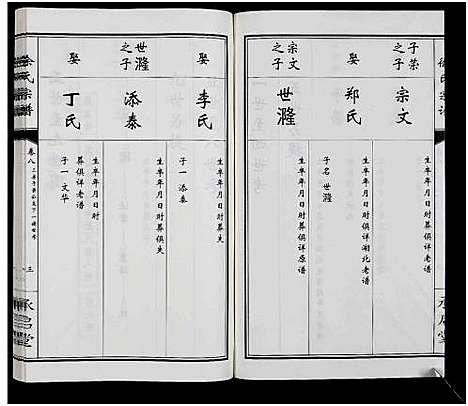 子荣之子
宗文
生卒年月日时葬俱详湖北老谱
娶
郑氏
子名世漋
宗文之子
世漋
生卒年月日时葬俱详原谱
娶
李氏
生卒年月日时葬俱失
子一添泰
世漋之子
添泰
生卒年月日时葬俱失
娶
丁氏
生卒年月日时
葬俱详老谱
子一文华
徐氏宗谱
卷八
三
承启堂